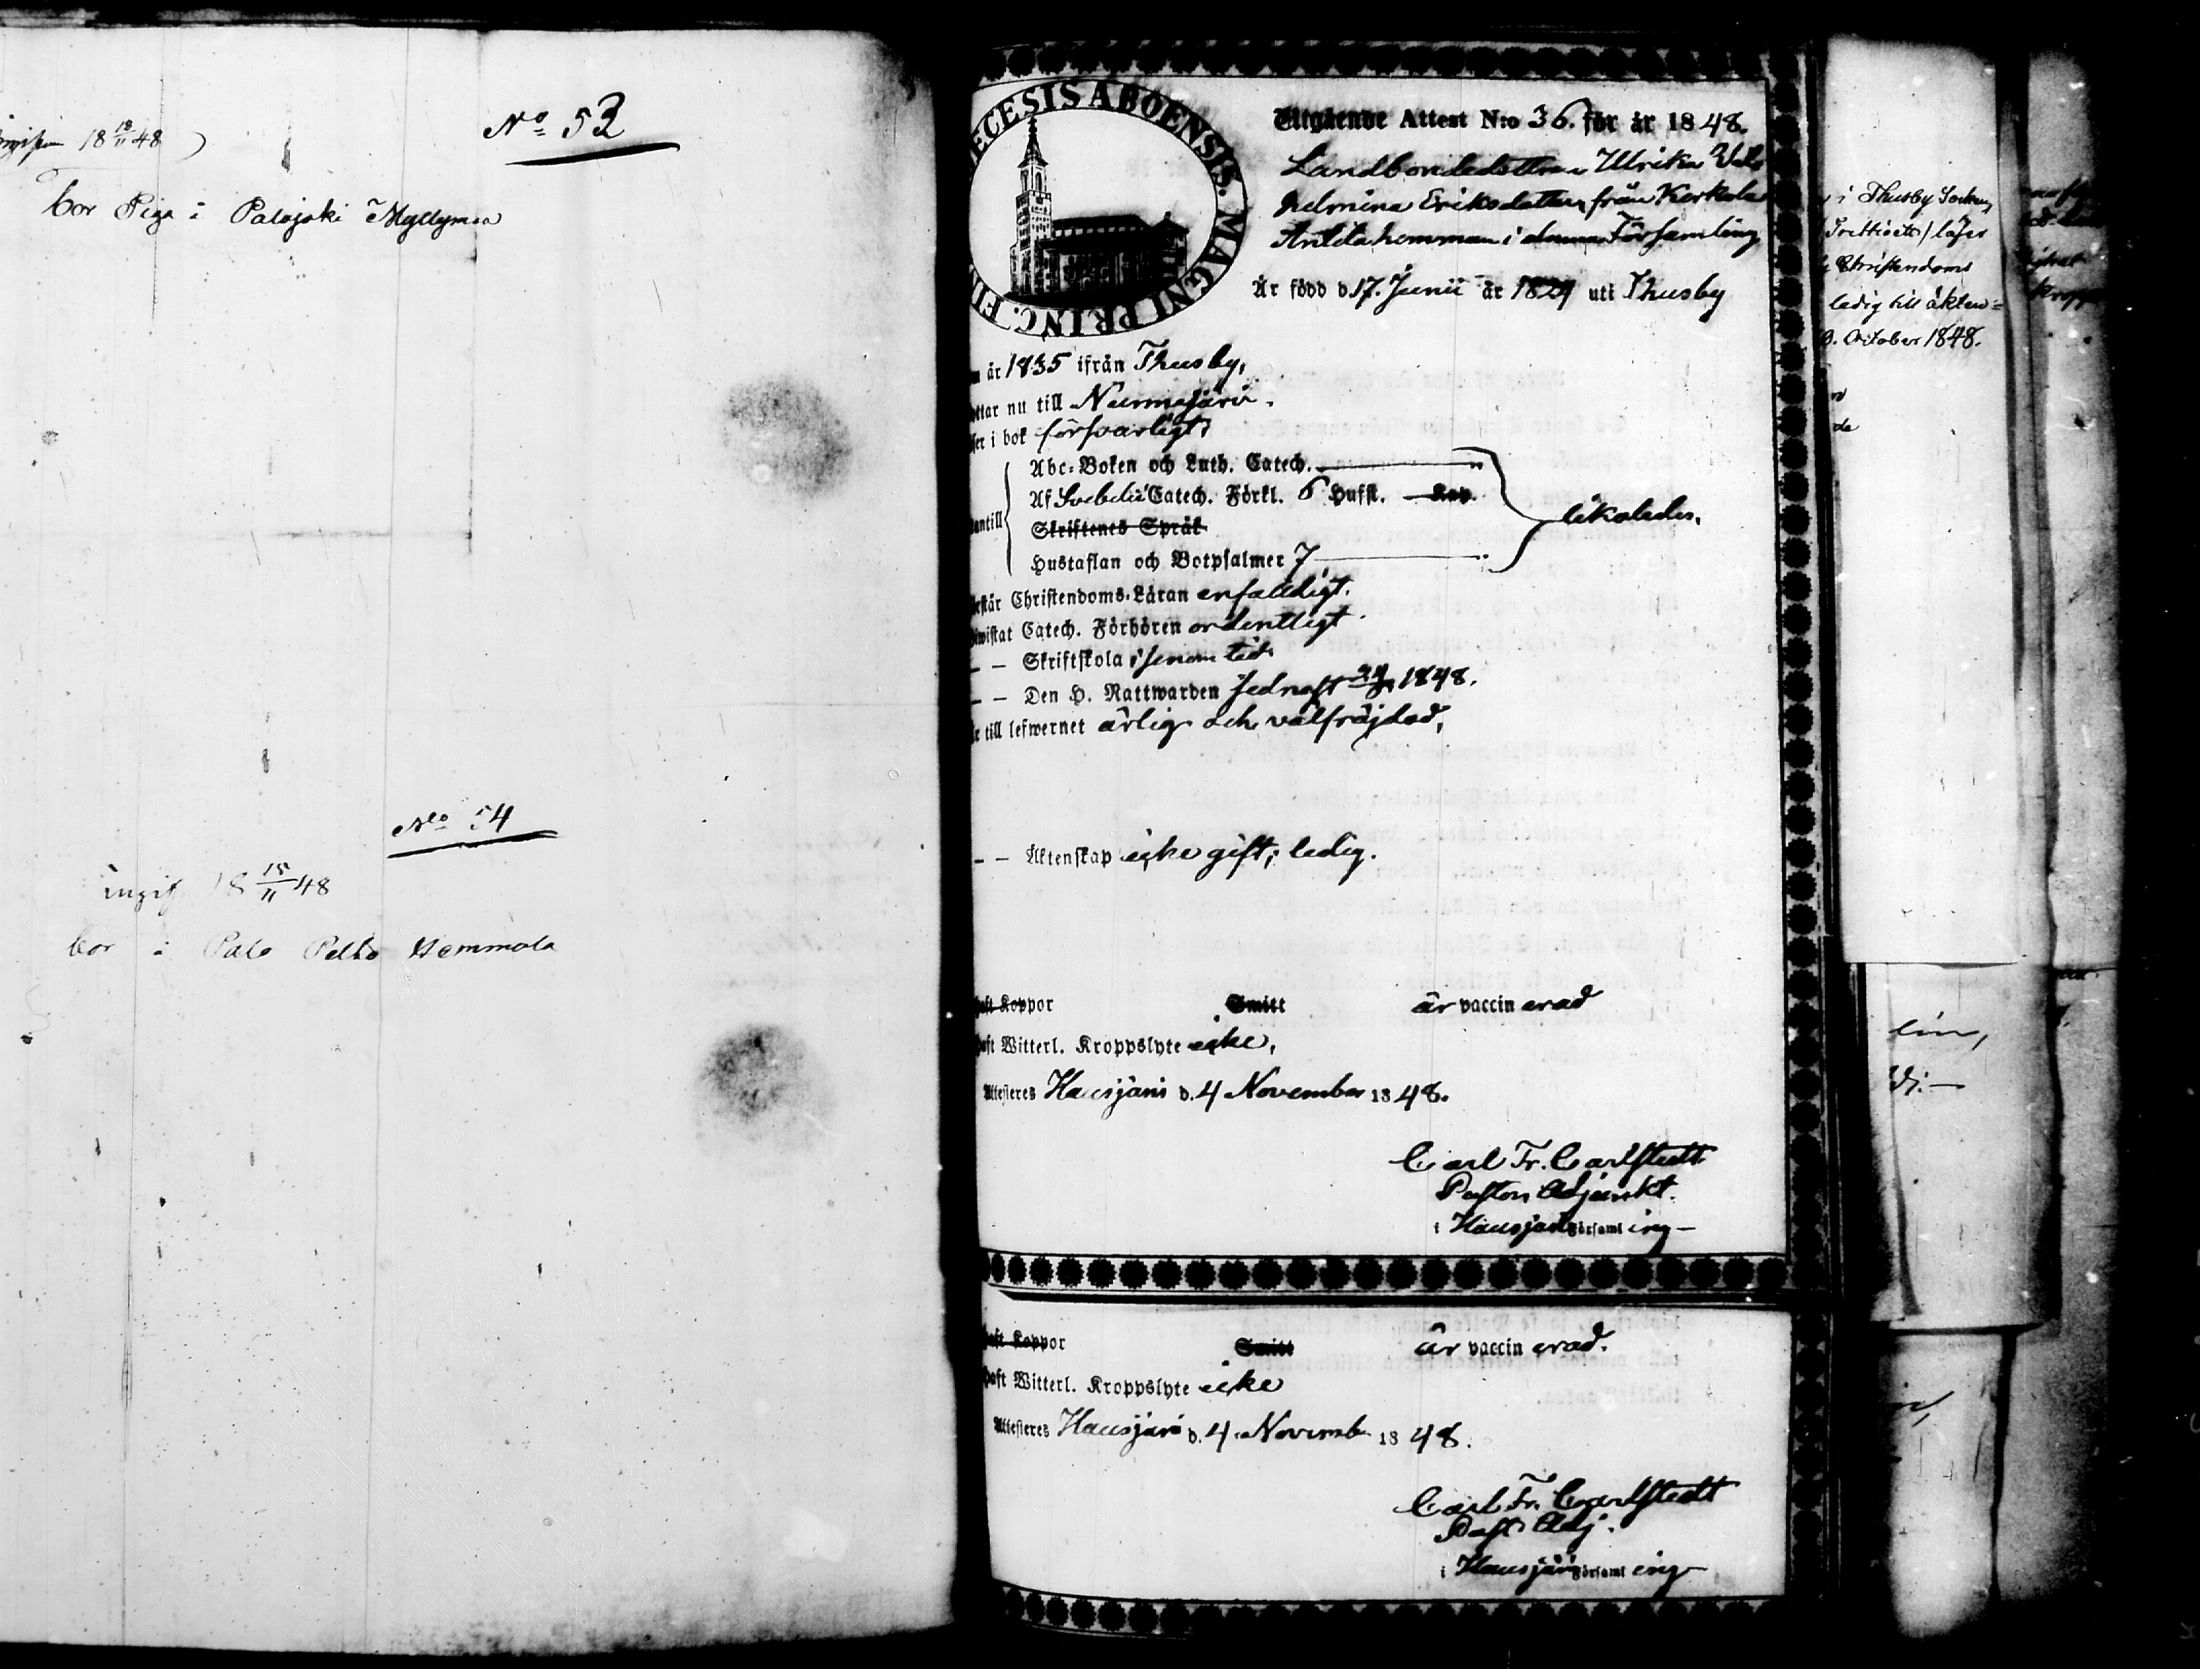 No 53
18 18/11 48)
bor Piga i Palojoki Myllymaa
No 54
ingif 18 15/11 48
bor i Palo Pelto Hemmola
ECESIS ABOENSIS. MAGNI PRINC. FIN
Utgående Attest N:o 36. för år 1848.
Landbondedottren Ulrika Vil
helmina Eriksdotter från Kerkola
Anttila hemman i denna Församling
Är född d. 17. Junii år 1824 uti Thusby
år 1835 ifrån Thusby,
ttar nu till Nurmijärvi.
ser i bok försvarligt,
antill
Abc-Boken och Luth. Catech.
Af Svebelii Catech. Förkl. 6 Hufst. Kap.
Skriftenes Språk
Hustaflan och Botpsalmer 7
likaledes.
rstår Christendoms-Läran enfaldigt.
iwistat Catech. Förhören ordentligt
— — Skriftskola i sinom tid
— — Den H. Nattwarden sednast 1848.
r till lefwernet ärlig och välfräjdad,
— — Äktenskap icke gift; ledig.
haft Koppor Smitt är vaccinerad
haft Witterl. Kroppslyte icke,
Attesteres Hausjärvi d. 4 November 1848.
Carl Fr. Carlstedt
Pastors Adjunkt.
i Hausjärvi Församling —
haft Koppor Smitt är vaccinerad.
haft Witterl. Kroppslyte icke
Attesteres Hausjärvi d. 4. Novemb 1848.
Carl Fr. Carlstedt
Past. Adj.
i Hausjärvi Församling
i Thusby Socken
läser
Christendoms
ledig till äkten=
October 1848.